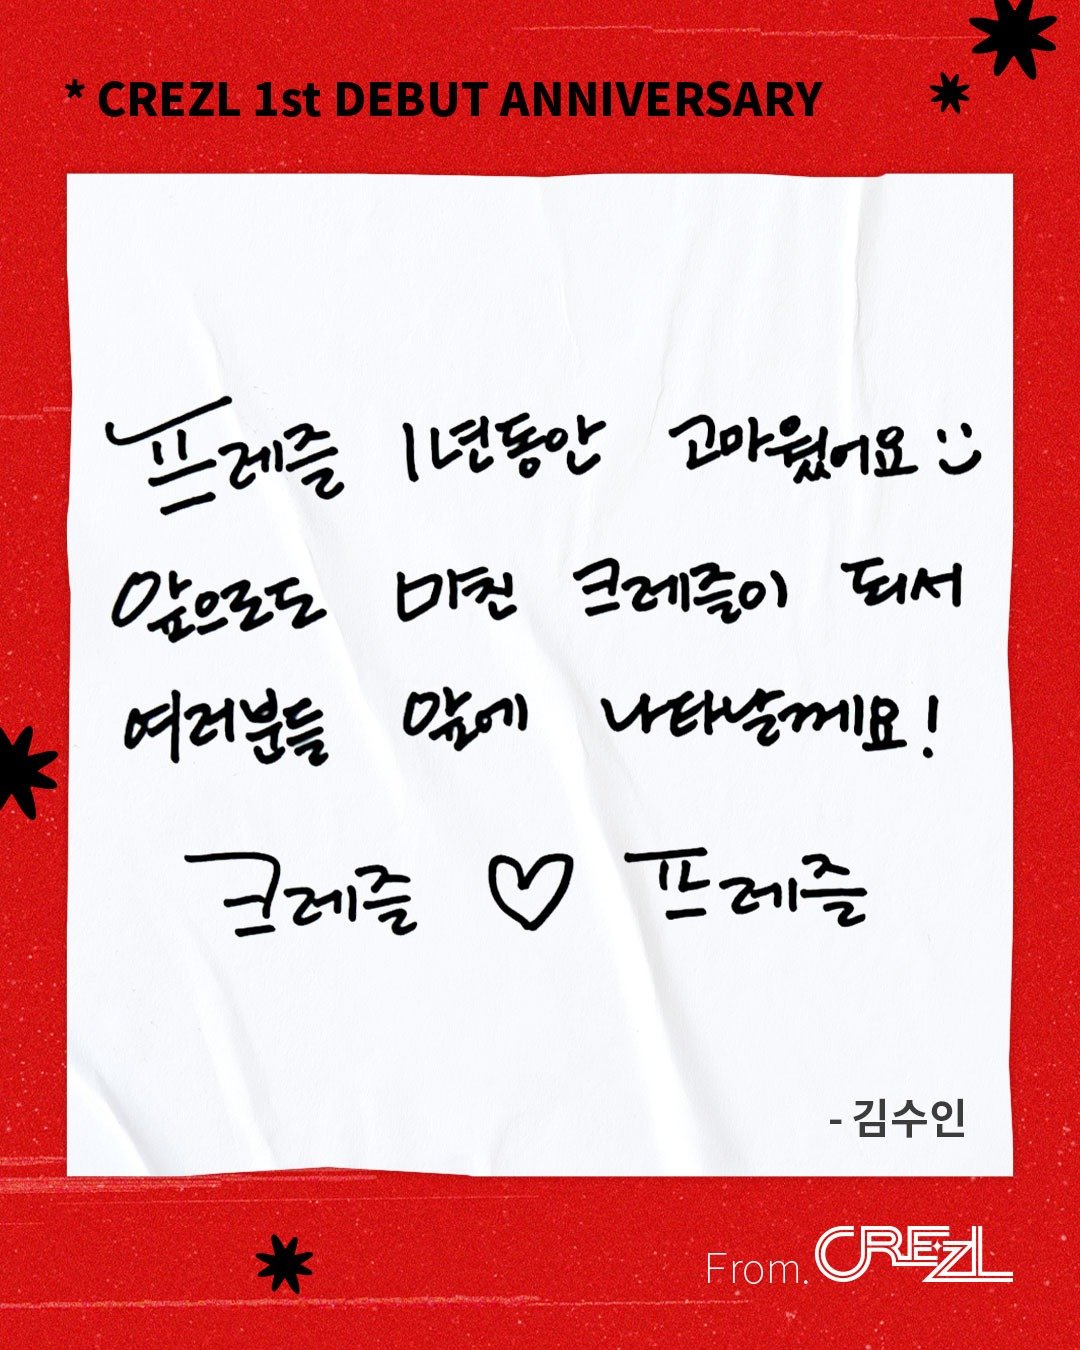 * CREZL 1st DEBUT ANNIVERSARY
프레즐 1년동안 고마웠어요 :)
앞으로도 미친 크레즐이 되서
여러분들 앞에 나타날께요!
크레즐 ♡ 프레즐
- 김수인
From. CREZL